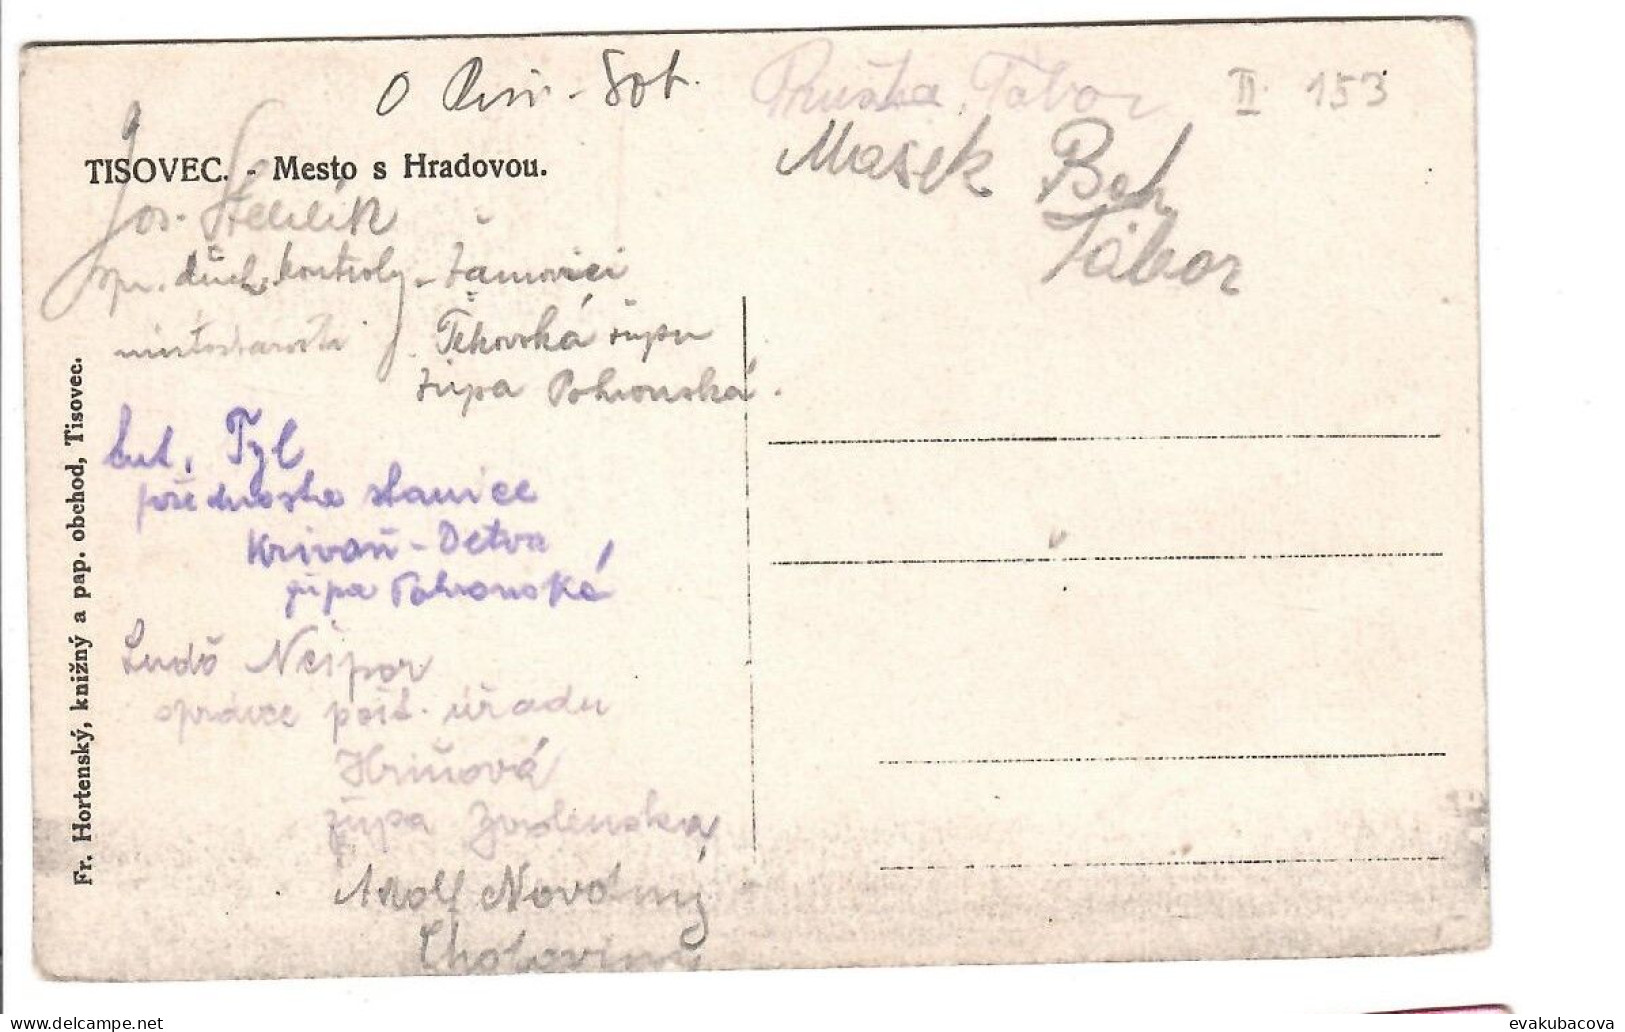 O Rim-Sob.
Pruška, Tábor
II. 153
Masek Boh
Tábor
TISOVEC. - Mesto s Hradovou.
Jos.
spr. důch. kontroly - Žarnovici
místostarosta
Tekovská župa
župa Pohronská.
Ant. Tyl
přednosta stanice
Krivaň - Detva
župa Pohronská
Ludě Nešpor
správce pošt. úřadu
Hriňová
župa Zvolenská
Adolf Novotný
Chotoviny
Fr. Hortenský, knižný a pap. obchod, Tisovec.
evakubacova